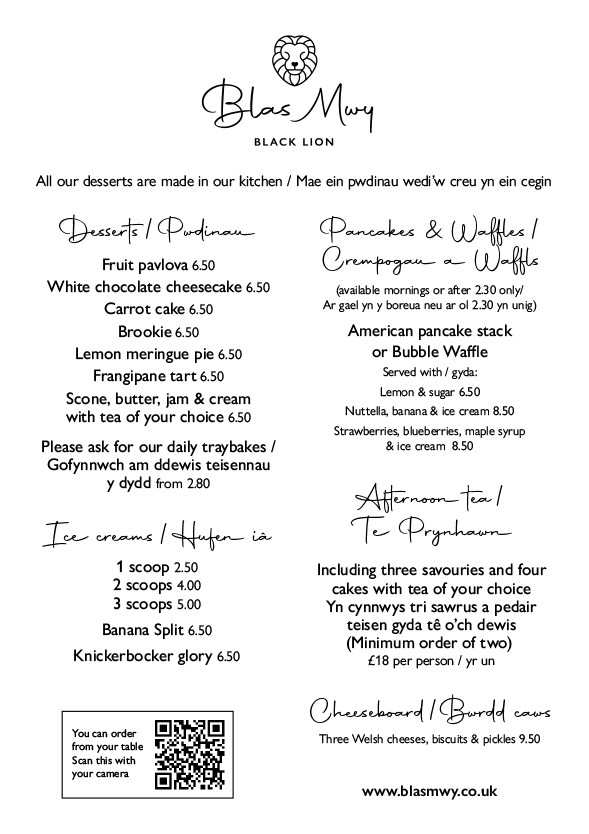 Blas Mwy
BLACK LION
All our desserts are made in our kitchen / Mae ein pwdinau wedi'w creu yn ein cegin
Desserts / Pwdinau
Fruit pavlova 6.50
White chocolate cheesecake 6.50
Carrot cake 6.50
Brookie 6.50
Lemon meringue pie 6.50
Frangipane tart 6.50
Scone, butter, jam & cream
with tea of your choice 6.50
Please ask for our daily traybakes /
Gofynnwch am ddewis teisennau
y dydd from 2.80
Ice creams / Hufen iâ
1 scoop 2.50
2 scoops 4.00
3 scoops 5.00
Banana Split 6.50
Knickerbocker glory 6.50
You can order
from your table
Scan this with
your camera
Pancakes & Waffles /
Crempogau a Waffls
(available mornings or after 2.30 only/
Ar gael yn y boreua neu ar ol 2.30 yn unig)
American pancake stack
or Bubble Waffle
Served with / gyda:
Lemon & sugar 6.50
Nuttella, banana & ice cream 8.50
Strawberries, blueberries, maple syrup
& ice cream 8.50
Afternoon tea /
Te Prynhawn
Including three savouries and four
cakes with tea of your choice
Yn cynnwys tri sawrus a pedair
teisen gyda tê o'ch dewis
(Minimum order of two)
£18 per person / yr un
Cheeseboard / Bwrdd caws
Three Welsh cheeses, biscuits & pickles 9.50
www.blasmwy.co.uk